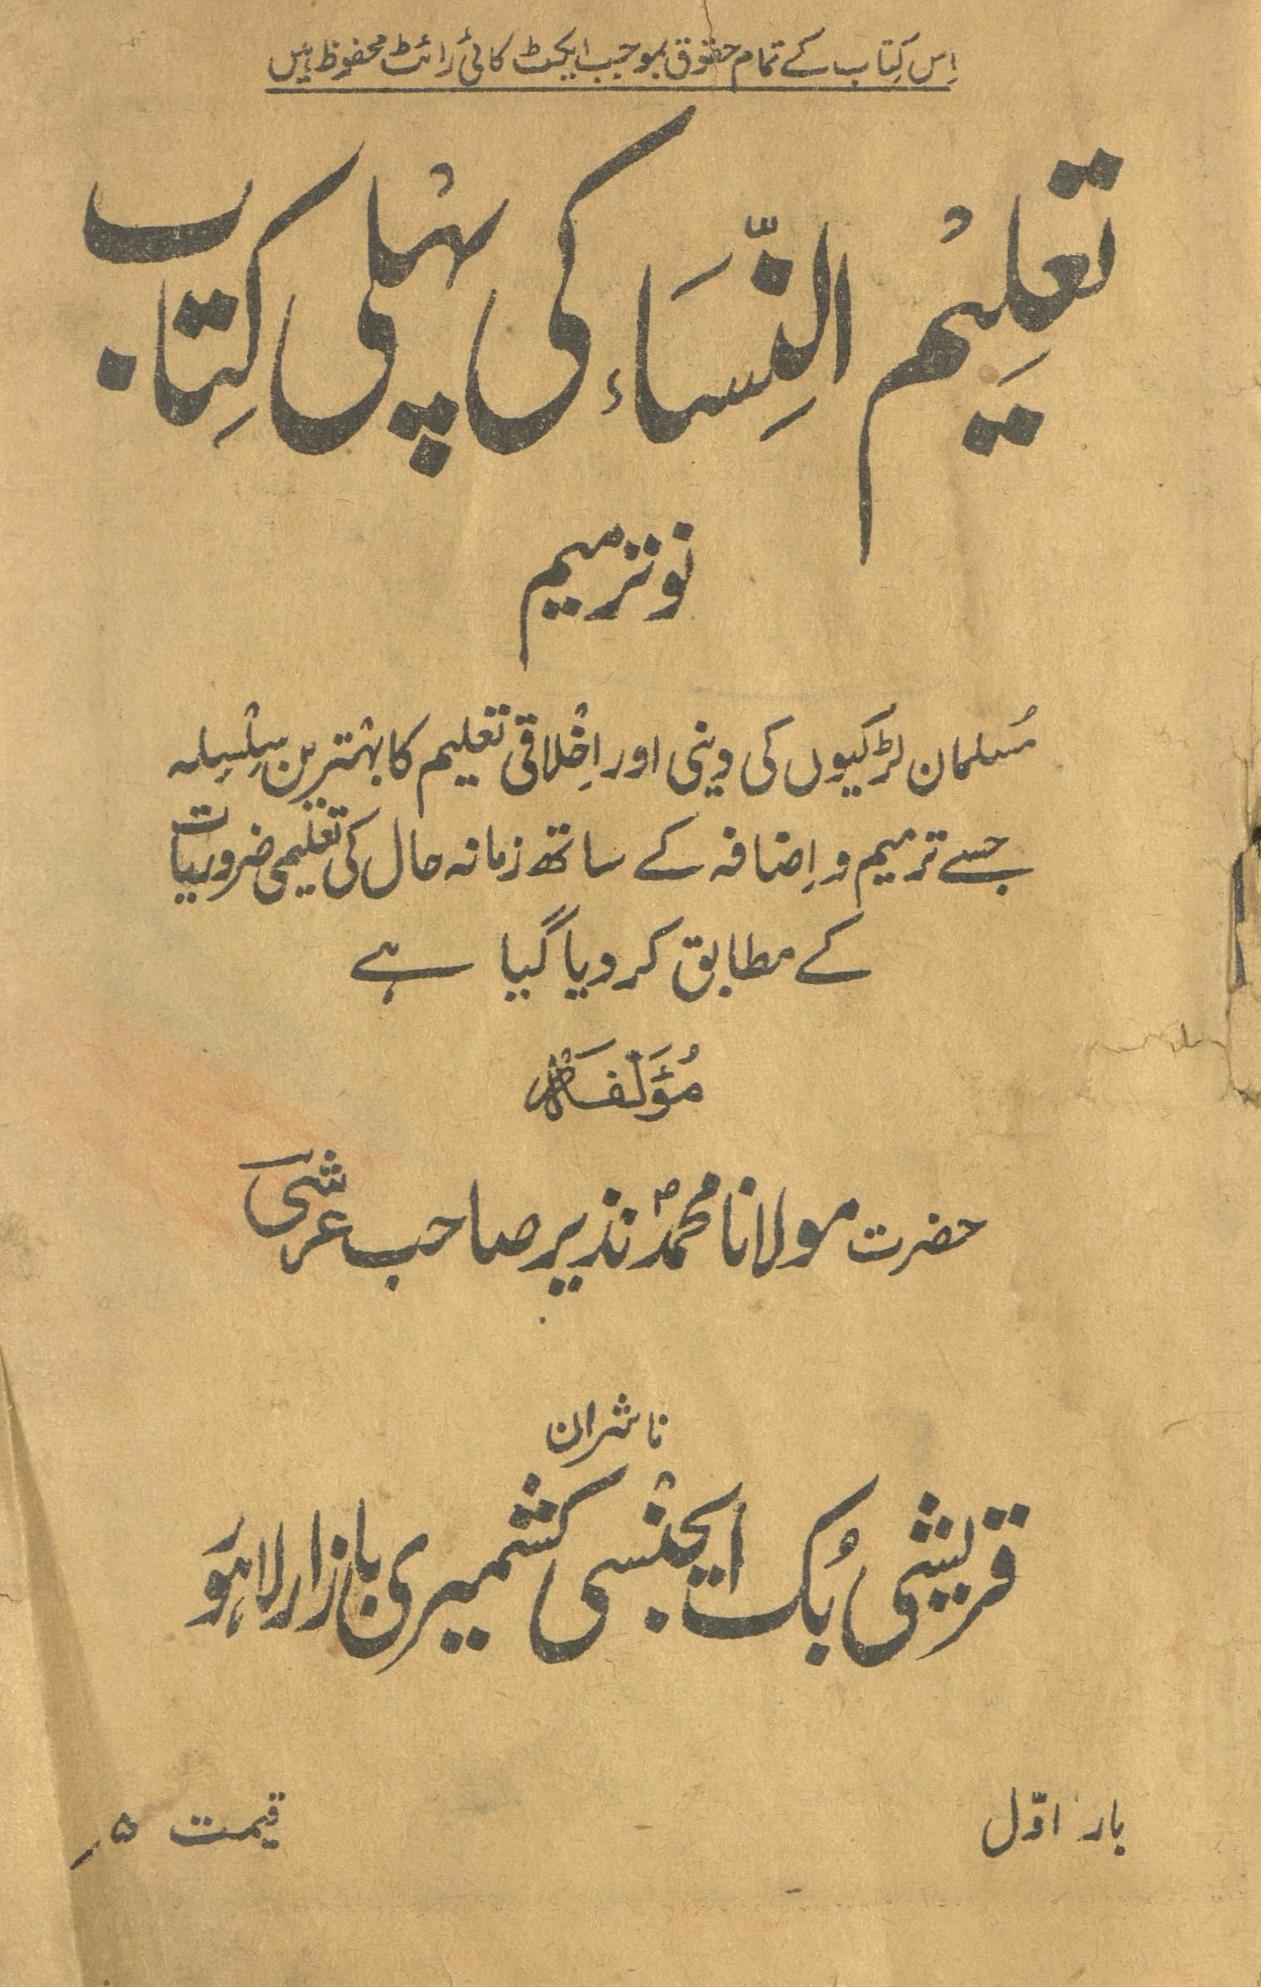 اِس کِتاب کے تمام حقوق بموجب ایکٹ کاپی رائٹ محفوظ ہیں
تعلِیْم النِّسَاء کی پہْلی کِتاب
نو ترمیم
مُسلمان لڑکیوں کی دینی اور اِخْلاقی تعْلیم کا بہْترین سِلْسِلہ
جسے ترمیم و اِضافہ کے ساتھ زمانہ حال کی تعْلیمی ضروریات
کے مطابق کر دیا گیا ہے
مُؤَلَّفَہٗ
حضرت مولانا محمدؐ نذیر صاحب عرشی
ناشران
قریشی بُک ایجنْسی کشمیری بازار لاہوَر
بار اوّل
قیمت ۵ر